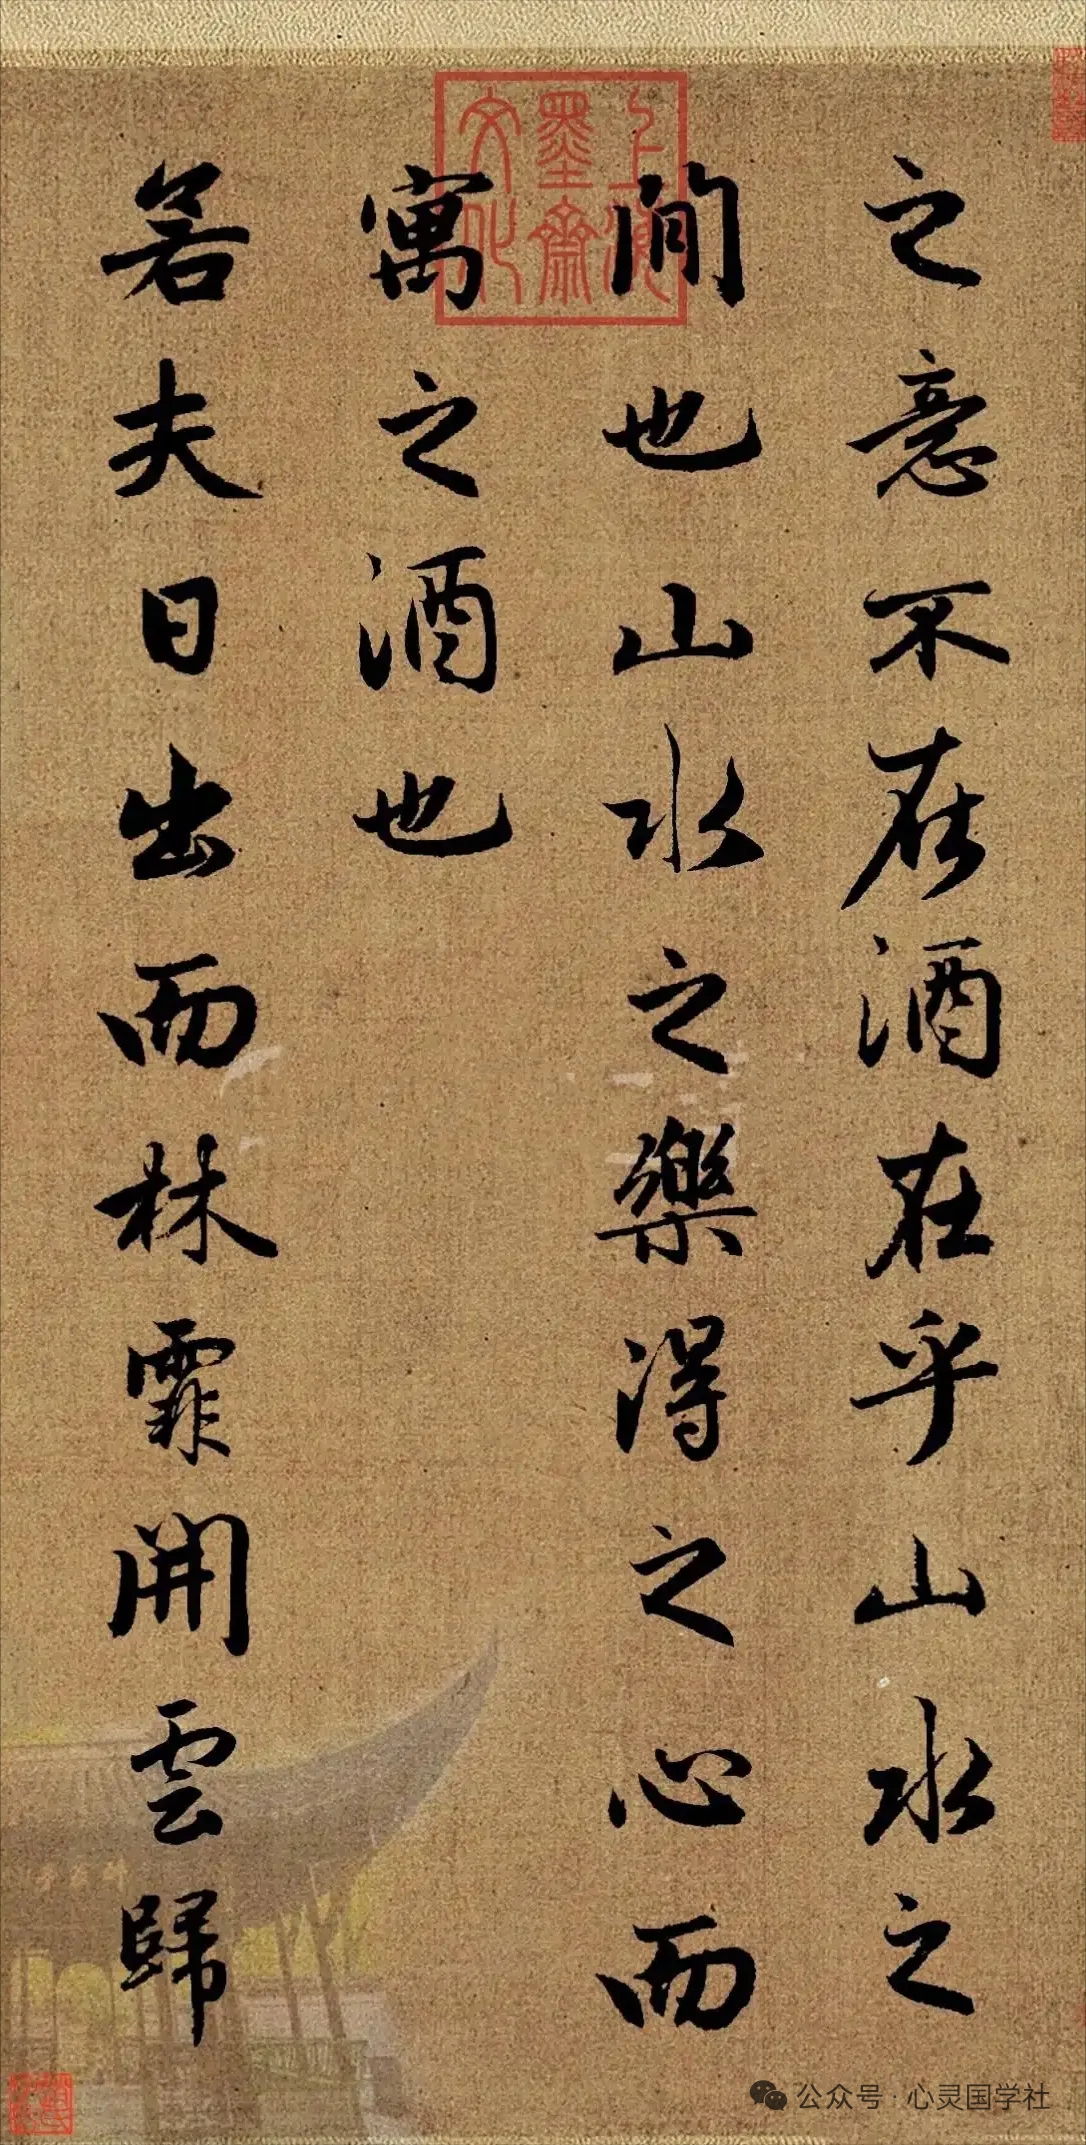 之意不在酒在乎山水之
間也山水之樂得之心而
寓之酒也
若夫日出而林霏開雲歸
上海
墨齋
文化
公众号·心灵国学社